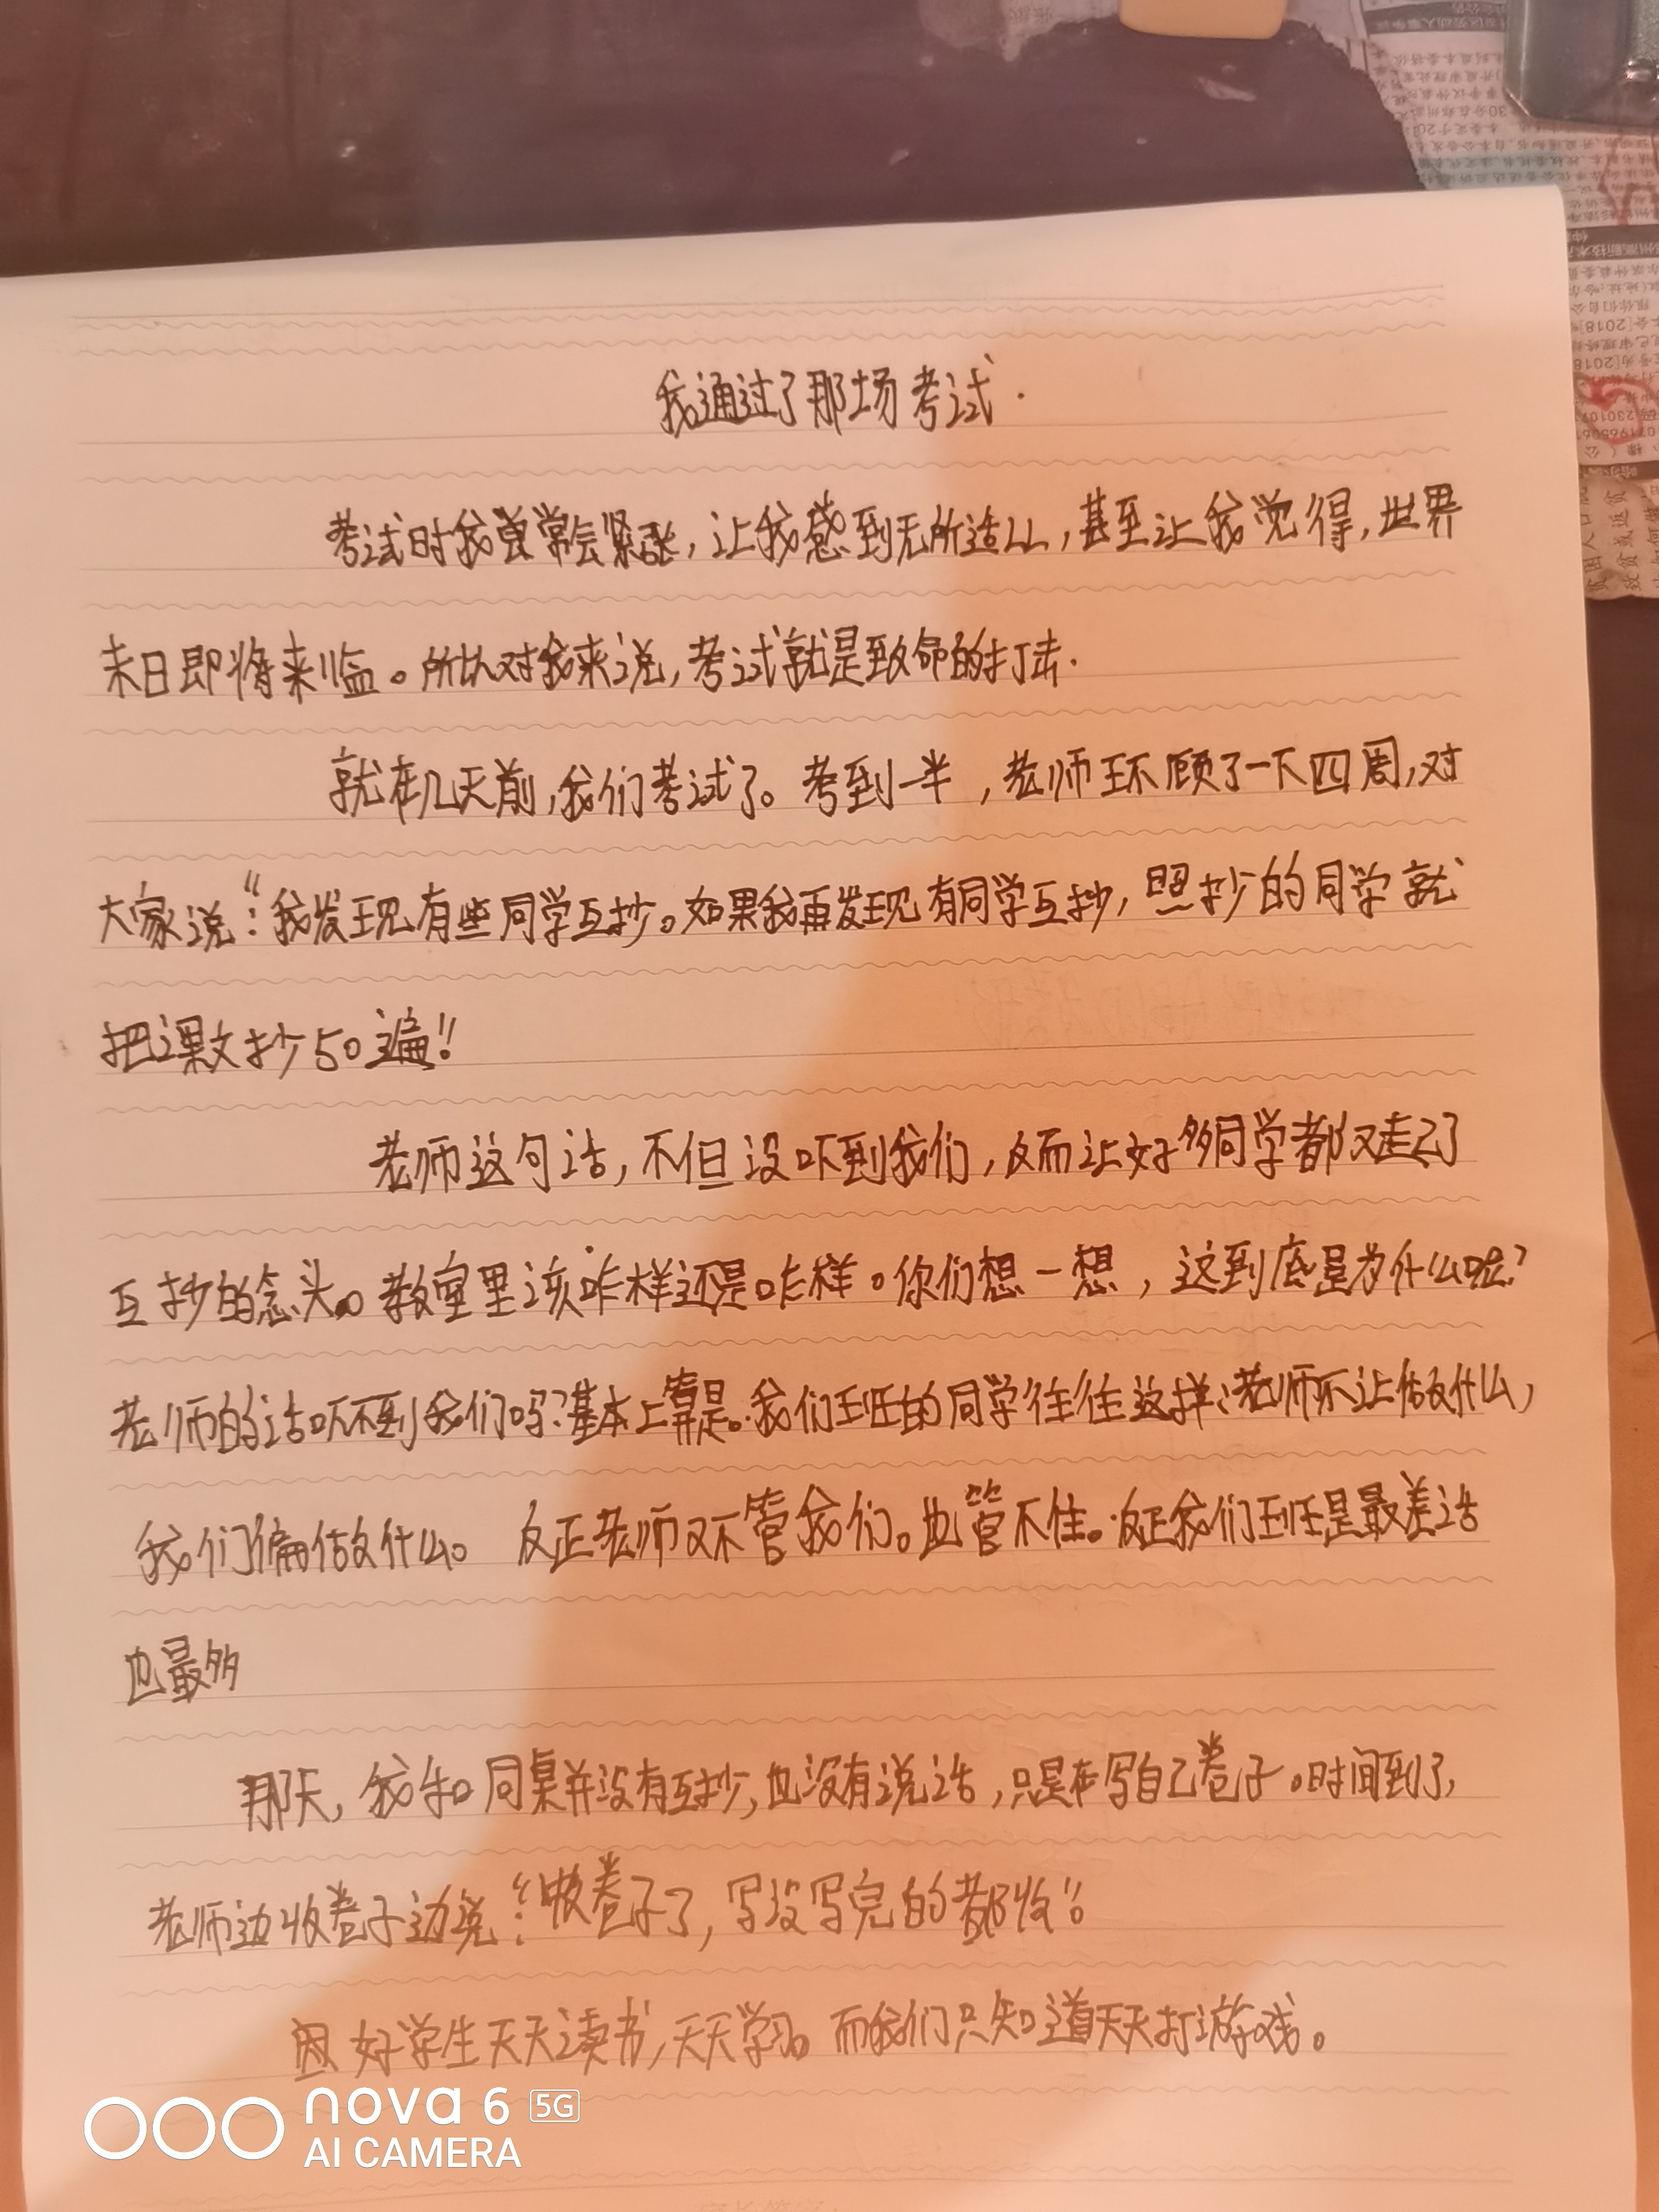 我通过了那场考试.
考试时我常会紧张,让我感到无所适从,甚至让我觉得,世界
末日即将来临。所以对我来说,考试就是致命的打击.
就在几天前,我们考试了。考到一半,老师环顾了一下四周,对
大家说:“我发现有些同学互抄。如果我再发现有同学互抄,照抄的同学就
把课文抄50遍!”
老师这句话,不但没吓到我们,反而让好多同学都又起了
互抄的念头。教室里该咋样还是咋样。你们想一想,这到底是为什么呢?
老师的话吓不到我们吗?基本上算是。我们班的同学往往这样:老师不让做什么,
我们偏做什么。反正老师又不管我们。也管不住。反正我们班是最差话
也最多
那天,我和同桌并没有互抄,也没有说话,只是在写自己卷子。时间到了,
老师边收卷子边说:“收卷子了,写没写完的都收”。
好学生天天读书,天天学习。而我们只知道天天打游戏。
nova 6 5G
AI CAMERA